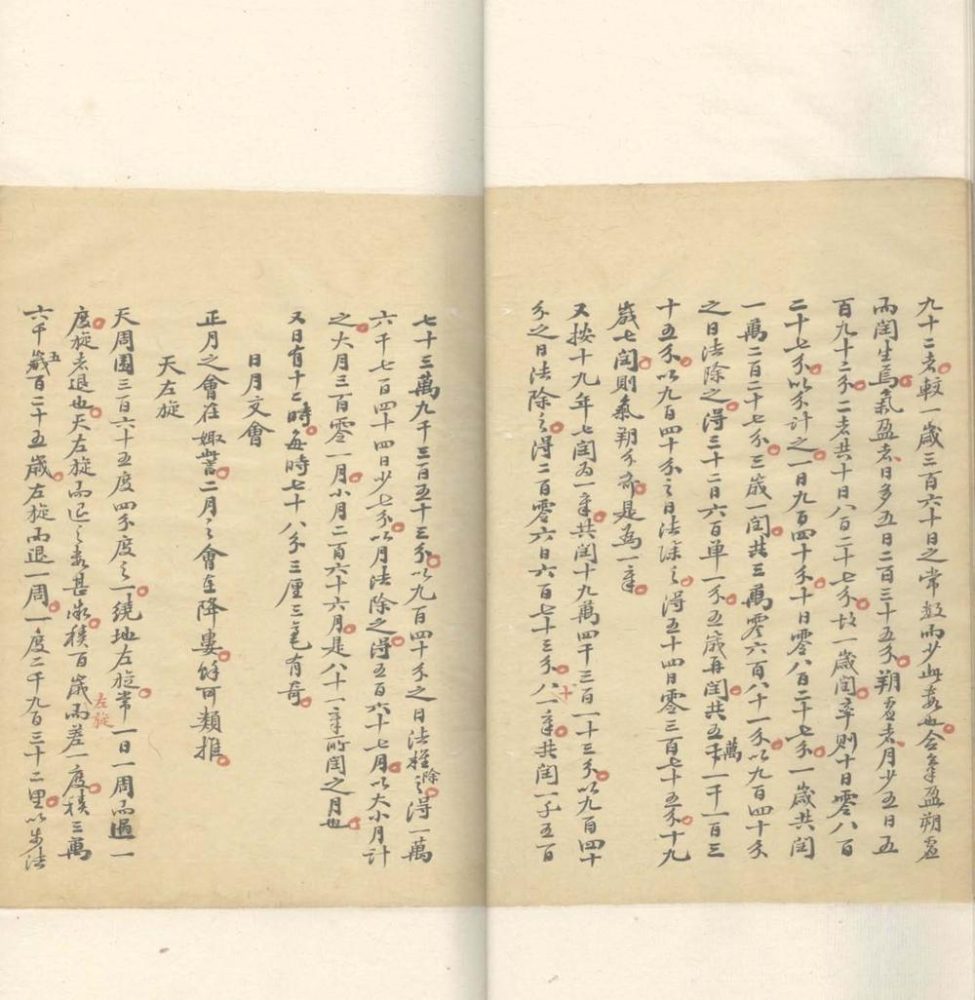 九十二者較一歲三百六十日之常數而少此數也合氣盈朔虛
而閏生焉氣盈者日多五日二百三十五分朔虛者月少五日五
百九十二分二者共十日八百二十七分故一歲閏率則十日零八百
二十七分以分計之一日九百四十分十日零八百二十七分一歲共閏
一萬二百二十七分三歲一閏共三萬零六百八十一分以九百四十分
之日法除之得三十二日六百單一分五歲再閏共五萬一千一百三
十五分以九百四十分之日法除之得五十四日零三百七十五分十九
歲七閏則氣朔分齊是為一章
又按十九年七閏為一章共閏十九萬四千三百一十三分以九百四十
分之日法除之得二百零六日六百七十三分八十一章共閏一千五百
七十三萬九千三百五十三分以九百四十分之日法除之得一萬
六千七百四十四日少七分以月法除之得五百六十七月以大小月計
之大月三百零一月小月二百六十六月是八十一章所閏之月也
又日有十二時每時七十八分三厘三毫有奇
日月交會
正月之會在娵訾二月之會在降婁餘可類推
天左旋
天周圍三百六十五度四分度之一繞地左旋常一日一周而過一
度旋者退也天左旋而退之數甚微積百歲而差一度積三萬
左旋
六千五百二十五歲左旋而退一周一度二千九百三十二里以步法